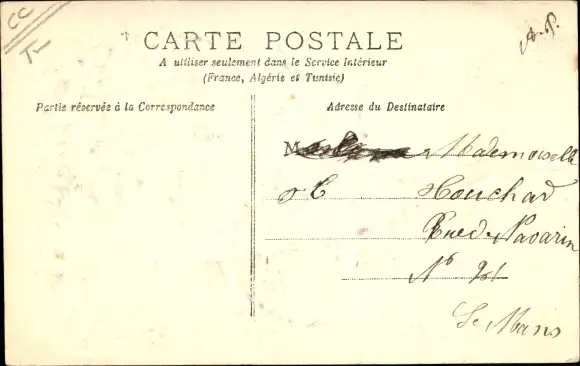 CC
A.P.
CARTE POSTALE
A utiliser seulement dans le Service Intérieur
(France, Algérie et Tunisie)
Partie réservée à la Correspondance
Adresse du Destinataire
M Mademoiselle
Houchard
Rue de Navarin
No
Le Mans